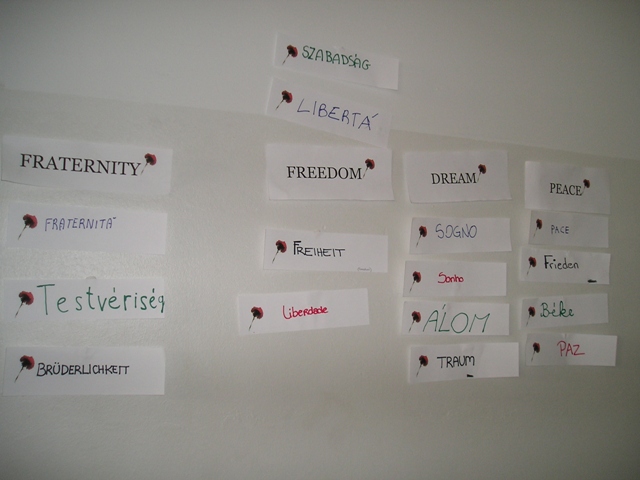 SZABADSÁG
LIBERTÁ
FRATERNITY
FREEDOM
DREAM
PEACE
FRATERNITÁ
FREIHEIT
SOGNO
PACE
Testvériség
Liberdade
Sonho
Frieden
ÁLOM
Béke
BRÜDERLICHKEIT
TRAUM
PAZ